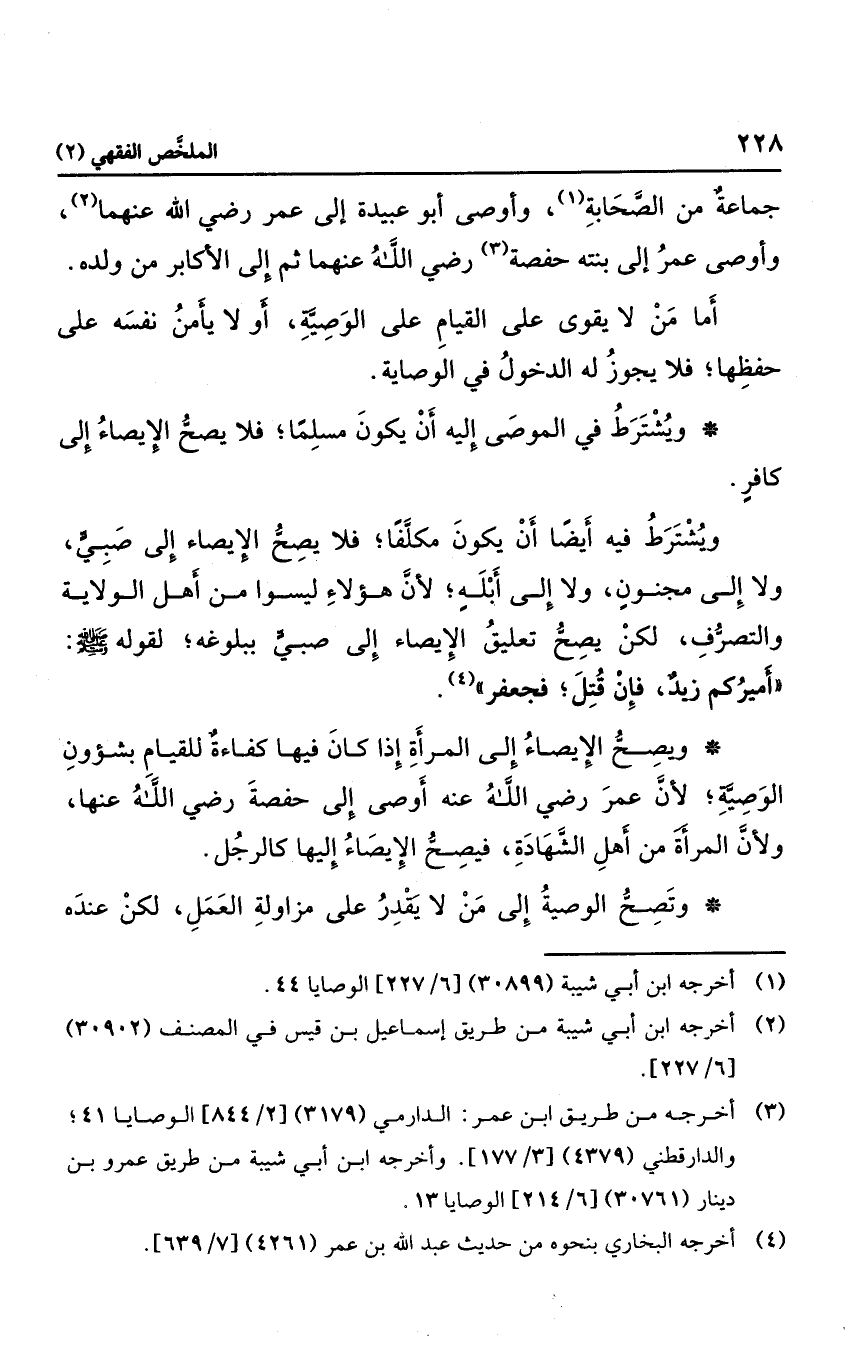 ٢٢٨
الملخَّص الفقهي (٢)
جماعةٌ من الصَّحَابةِ(١)، وأوصى أبو عبيدة إلى عمر رضي الله عنهما(٢)،
وأوصى عمرُ إلى بنته حفصة(٣) رضي اللَّهُ عنهما ثم إلى الأكابر من ولده.
أما مَنْ لا يقوى على القيامِ على الوَصِيَّةِ، أَو لا يأمنُ نفسَه على
حفظِها؛ فلا يجوزُ له الدخولُ في الوصاية.
* ويُشْتَرَطُ في الموصَى إليه أَنْ يكونَ مسلِمًا؛ فلا يصحُّ الإيصاءُ إلى
كافرٍ.
ويُشْتَرَطُ فيه أَيضًا أَنْ يكونَ مكلَّفًا؛ فلا يصِحُّ الإيصاء إلى صَبِيٍّ،
ولا إلى مجنونٍ، ولا إلى أَبْلَهٍ؛ لأنَّ هؤلاءِ ليسوا من أَهل الولاية
والتصرُّفِ، لكنْ يصِحُّ تعليقُ الإيصاء إلى صبيٍّ ببلوغه؛ لقوله ﷺ:
«أَميرُكم زيدٌ، فإنْ قُتِلَ؛ فجعفر»(٤).
* ويصِحُّ الإيصاءُ إلى المرأَةِ إذا كانَ فيها كفاءةٌ للقيامِ بشؤونِ
الوَصِيَّةِ؛ لأنَّ عمرَ رضي اللَّهُ عنه أَوصى إلى حفصةَ رضي اللَّهُ عنها،
ولأنَّ المرأَةَ من أَهلِ الشَّهَادَةِ، فيصِحُّ الإيصَاءُ إليها كالرجُل.
* وتَصِحُّ الوصيةُ إلى مَنْ لا يَقْدِرُ على مزاولةِ العَمَلِ، لكنْ عندَه
(١) أخرجه ابن أبي شيبة (٣٠٨٩٩) [٦/ ٢٢٧] الوصايا ٤٤.
(٢) أخرجه ابن أبي شيبة من طريق إسماعيل بن قيس في المصنف (٣٠٩٠٢)
[٦/ ٢٢٧].
(٣) أخرجه من طريق ابن عمر: الدارمي (٣١٧٩) [٢/ ٨٤٤] الوصايا ٤١؛
والدارقطني (٤٣٧٩) [٣/ ١٧٧]. وأخرجه ابن أبي شيبة من طريق عمرو بن
دينار (٣٠٧٦١) [٦/ ٢١٤] الوصايا ١٣.
(٤) أخرجه البخاري بنحوه من حديث عبد الله بن عمر (٤٢٦١) [٧/ ٦٣٩].